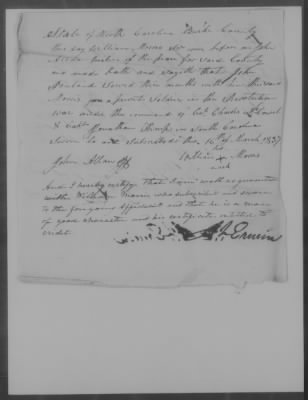 State of North Carolina Burke County
this day William Morris came before me John
justice of the peace for said County
and made oath and sayeth that John
served three months with me the said
Morris as a private soldier in the Revolution
War under the command of Col Charles McDowel
& Capt Jonathan in North Carolina
Sworn to and Subscribed this 16th of March 1837
his
John
William X Morris
mark
And I hereby certify that I am well acquainted
with William Morris who subscribed and swore
to the foregoing affidavit and that he is a man
of good character and his certificate entitled to
credit
Erwin